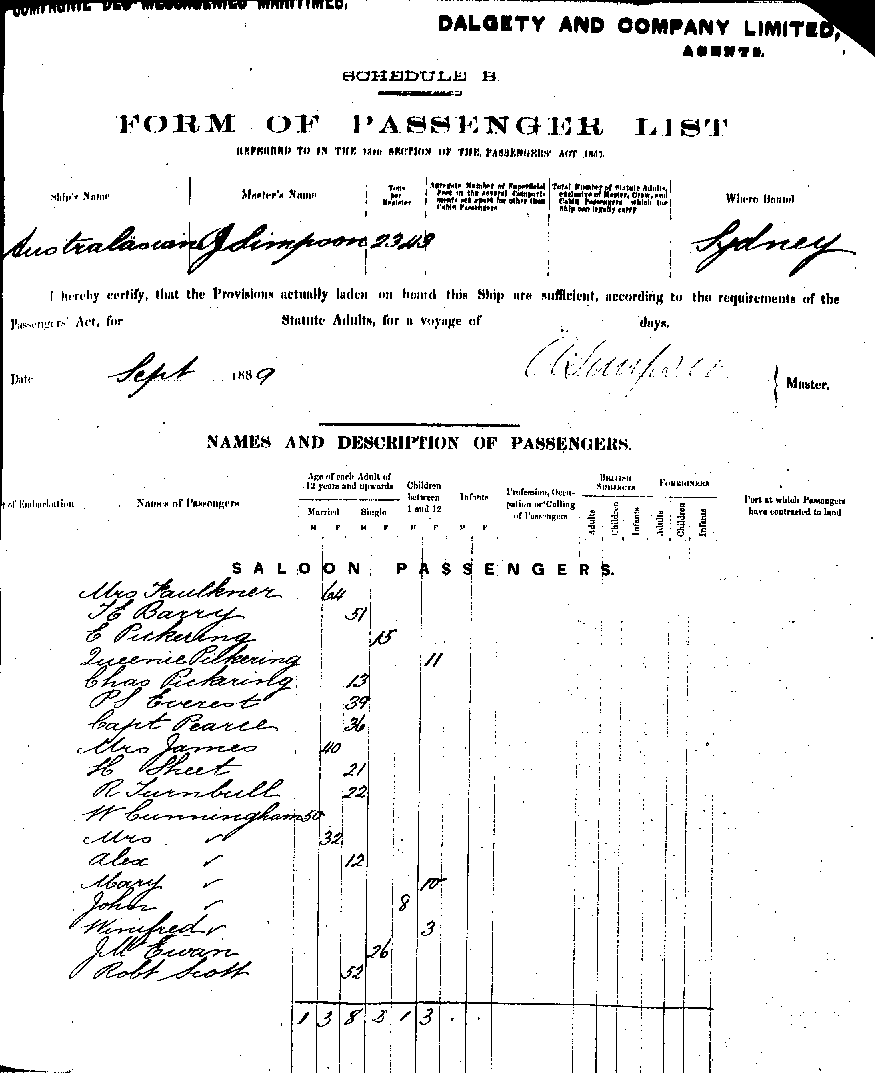 COMPAGNIE DES MESSAGERIES MARITIMES,
DALGETY AND COMPANY LIMITED,
AGENTS.
SCHEDULE B.
FORM OF PASSENGER LIST
REFERRED TO IN THE SECTION OF THE PASSENGERS' ACT
Ship's Name Master's Name Tons per Register Aggregate Number of Superficial Feet in the several Compartments set apart for other than Cabin Passengers Total Number of Statute Adults, exclusive of Master, Crew, and Cabin Passengers which the Ship can legally carry Where Bound
Australasian J Simpson 2343 Sydney
I hereby certify, that the Provisions actually laden on board this Ship are sufficient, according to the requirements of the
Passengers' Act, for Statute Adults, for a voyage of days.
Date Sept 1889 Simpson } Master.
NAMES AND DESCRIPTION OF PASSENGERS.
of Embarkation Names of Passengers Age of each Adult of 12 years and upwards Married Single Children between 1 and 12 Infants Profession, Occupation or Calling of Passengers BRITISH SUBJECTS Adults Children Infants FOREIGNERS Adults Children Infants Port at which Passengers have contracted to land
M F M F M F M F
SALOON PASSENGERS.
Mrs Faulkner 64
Barry 51
E Pickering 15
Queenie Pickering 11
Chas Pickering 13
P S Everest 39
Capt Pearce 36
Mrs James 40
H Sheet 21
R Turnbull 22
W Cunningham 50
Mrs ✓ 32
Alex ✓ 12
Mary ✓ 10
John ✓ 8
Winifred ✓ 3
J McEwan 26
Robt Scott 52
1 3 8 2 1 3 . .